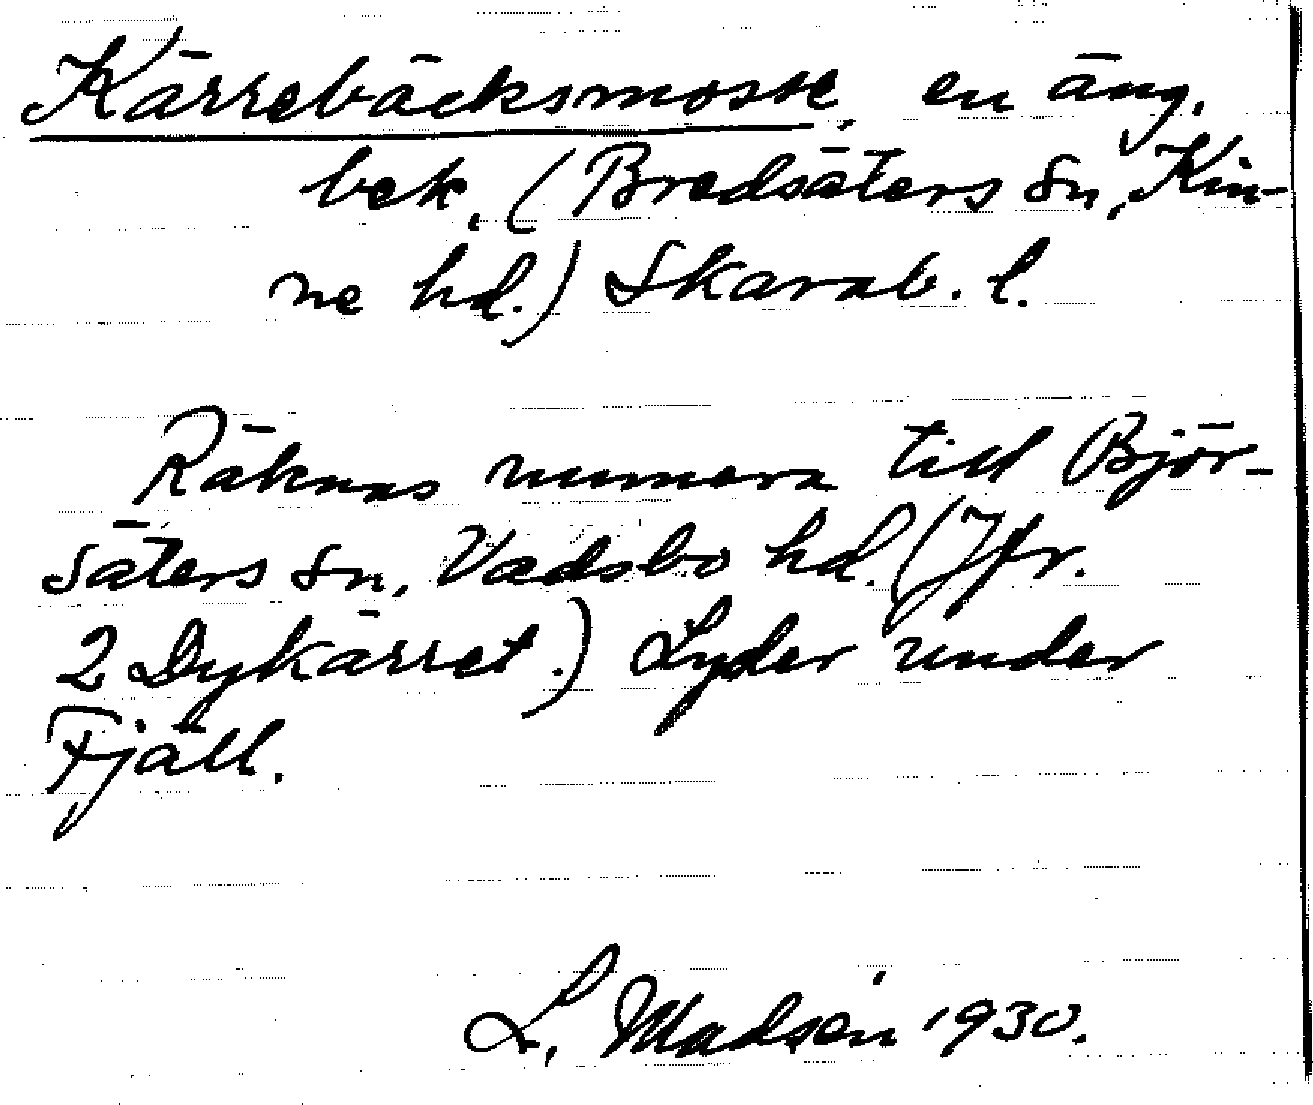 Kärrebäcksmosse, en äng,
bek. (Bredsäters sn, Kin-
ne hd.) Skarab. l.
Räknas numera till Björ-
säters sn, Vadsbo hd. (Jfr.
2 Dykärret.) Lyder under
Fjäll.
L. Madsén 1930.